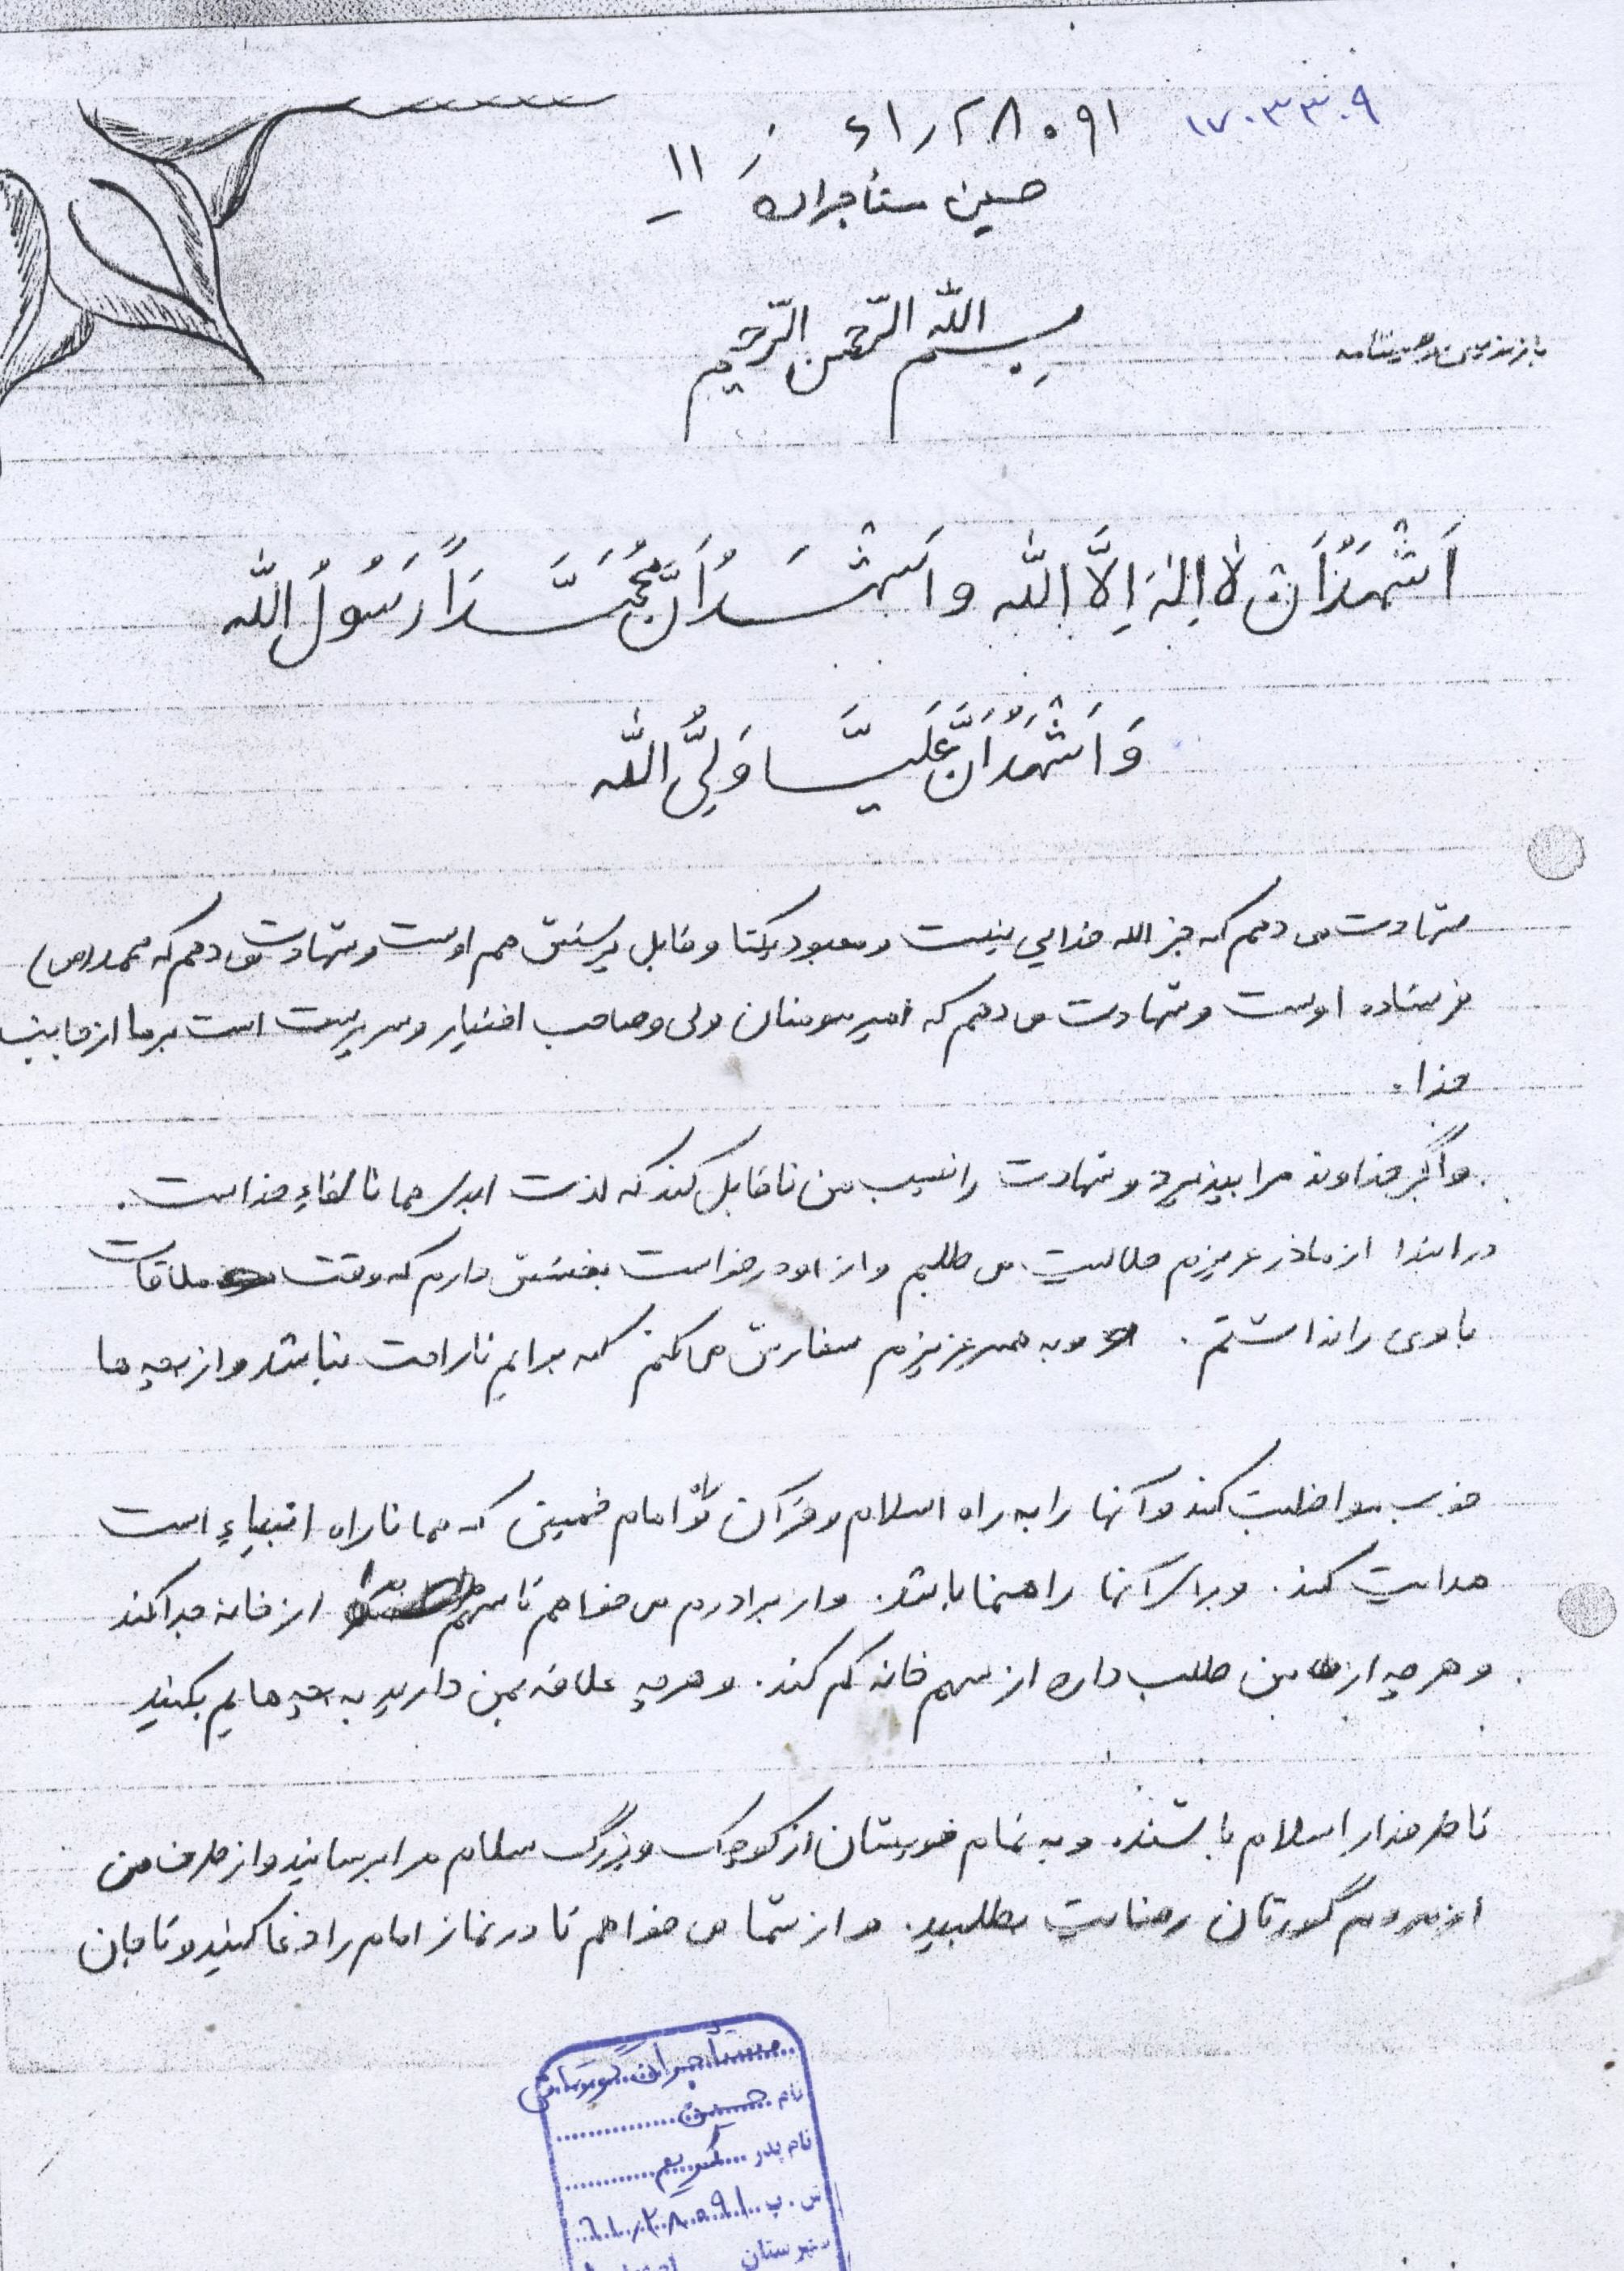 ۱۷۰۳۳۰۹
۶۱ر۲۸۰۹۱
حسین مستاجران
۱۱
بازنویسی وصیتنامه
بِسم اللّه الرّحمن الرّحیم
اَشْهَدُ اَن لا اِلهَ اِلاَّ اللّه و اَشْهَدُ اَنَّ مُحَمَّداً رَسُولُ اللّه
وَ اَشْهَدُ اَنَّ عَلیَّا وَلِیُّ اللّه
شهادت می دهم که جز الله خدایی نیست و معبود یکتا و قابل پرستش هم اوست و شهادت می دهم که محمد (ص)
فرستاده اوست و شهادت می دهم که امیر مومنان ولی و صاحب اختیار و سرپرست است بر ما از جانب
خدا.
و اگر خداوند مرا بپذیرد و شهادت را نصیب من ناقابل کند که لذت ابدی همانا لقاءِ خداست.
در ابتدا از مادر عزیزم حلالیت می طلبم و از او درخواست بخشش دارم که وقت ملاقات
با وی را نداشتم. و به همسر عزیزم سفارش می کنم که برایم ناراحت نباشد و از بچه ها
خوب مواظبت کند و آنها را به راه اسلام و قرآن و راه امام خمینی که همانا راه انبیاءِ است
هدایت کند. و برای آنها راهنما باشد. و از برادرم می خواهم تا سهم از خانه جدا کند
و هر چه از من طلب داره از سهم خانه کم کند. و هر چه علاقه بمن دارید به بچه هایم بکنید
تا طرفدار اسلام باشند. و به تمام خویشان از کوچک و بزرگ سلام مرا برسانید و از طرف من
از مردم گورتان رضایت بطلبید. و از شما می خواهم تا در نماز امام را دعا کنید و تا جان
مستأجران گورتانی
نام حسین
نام پدر کریم
ش.پ ۶۱۰۲۸۰۹۱
شهرستان